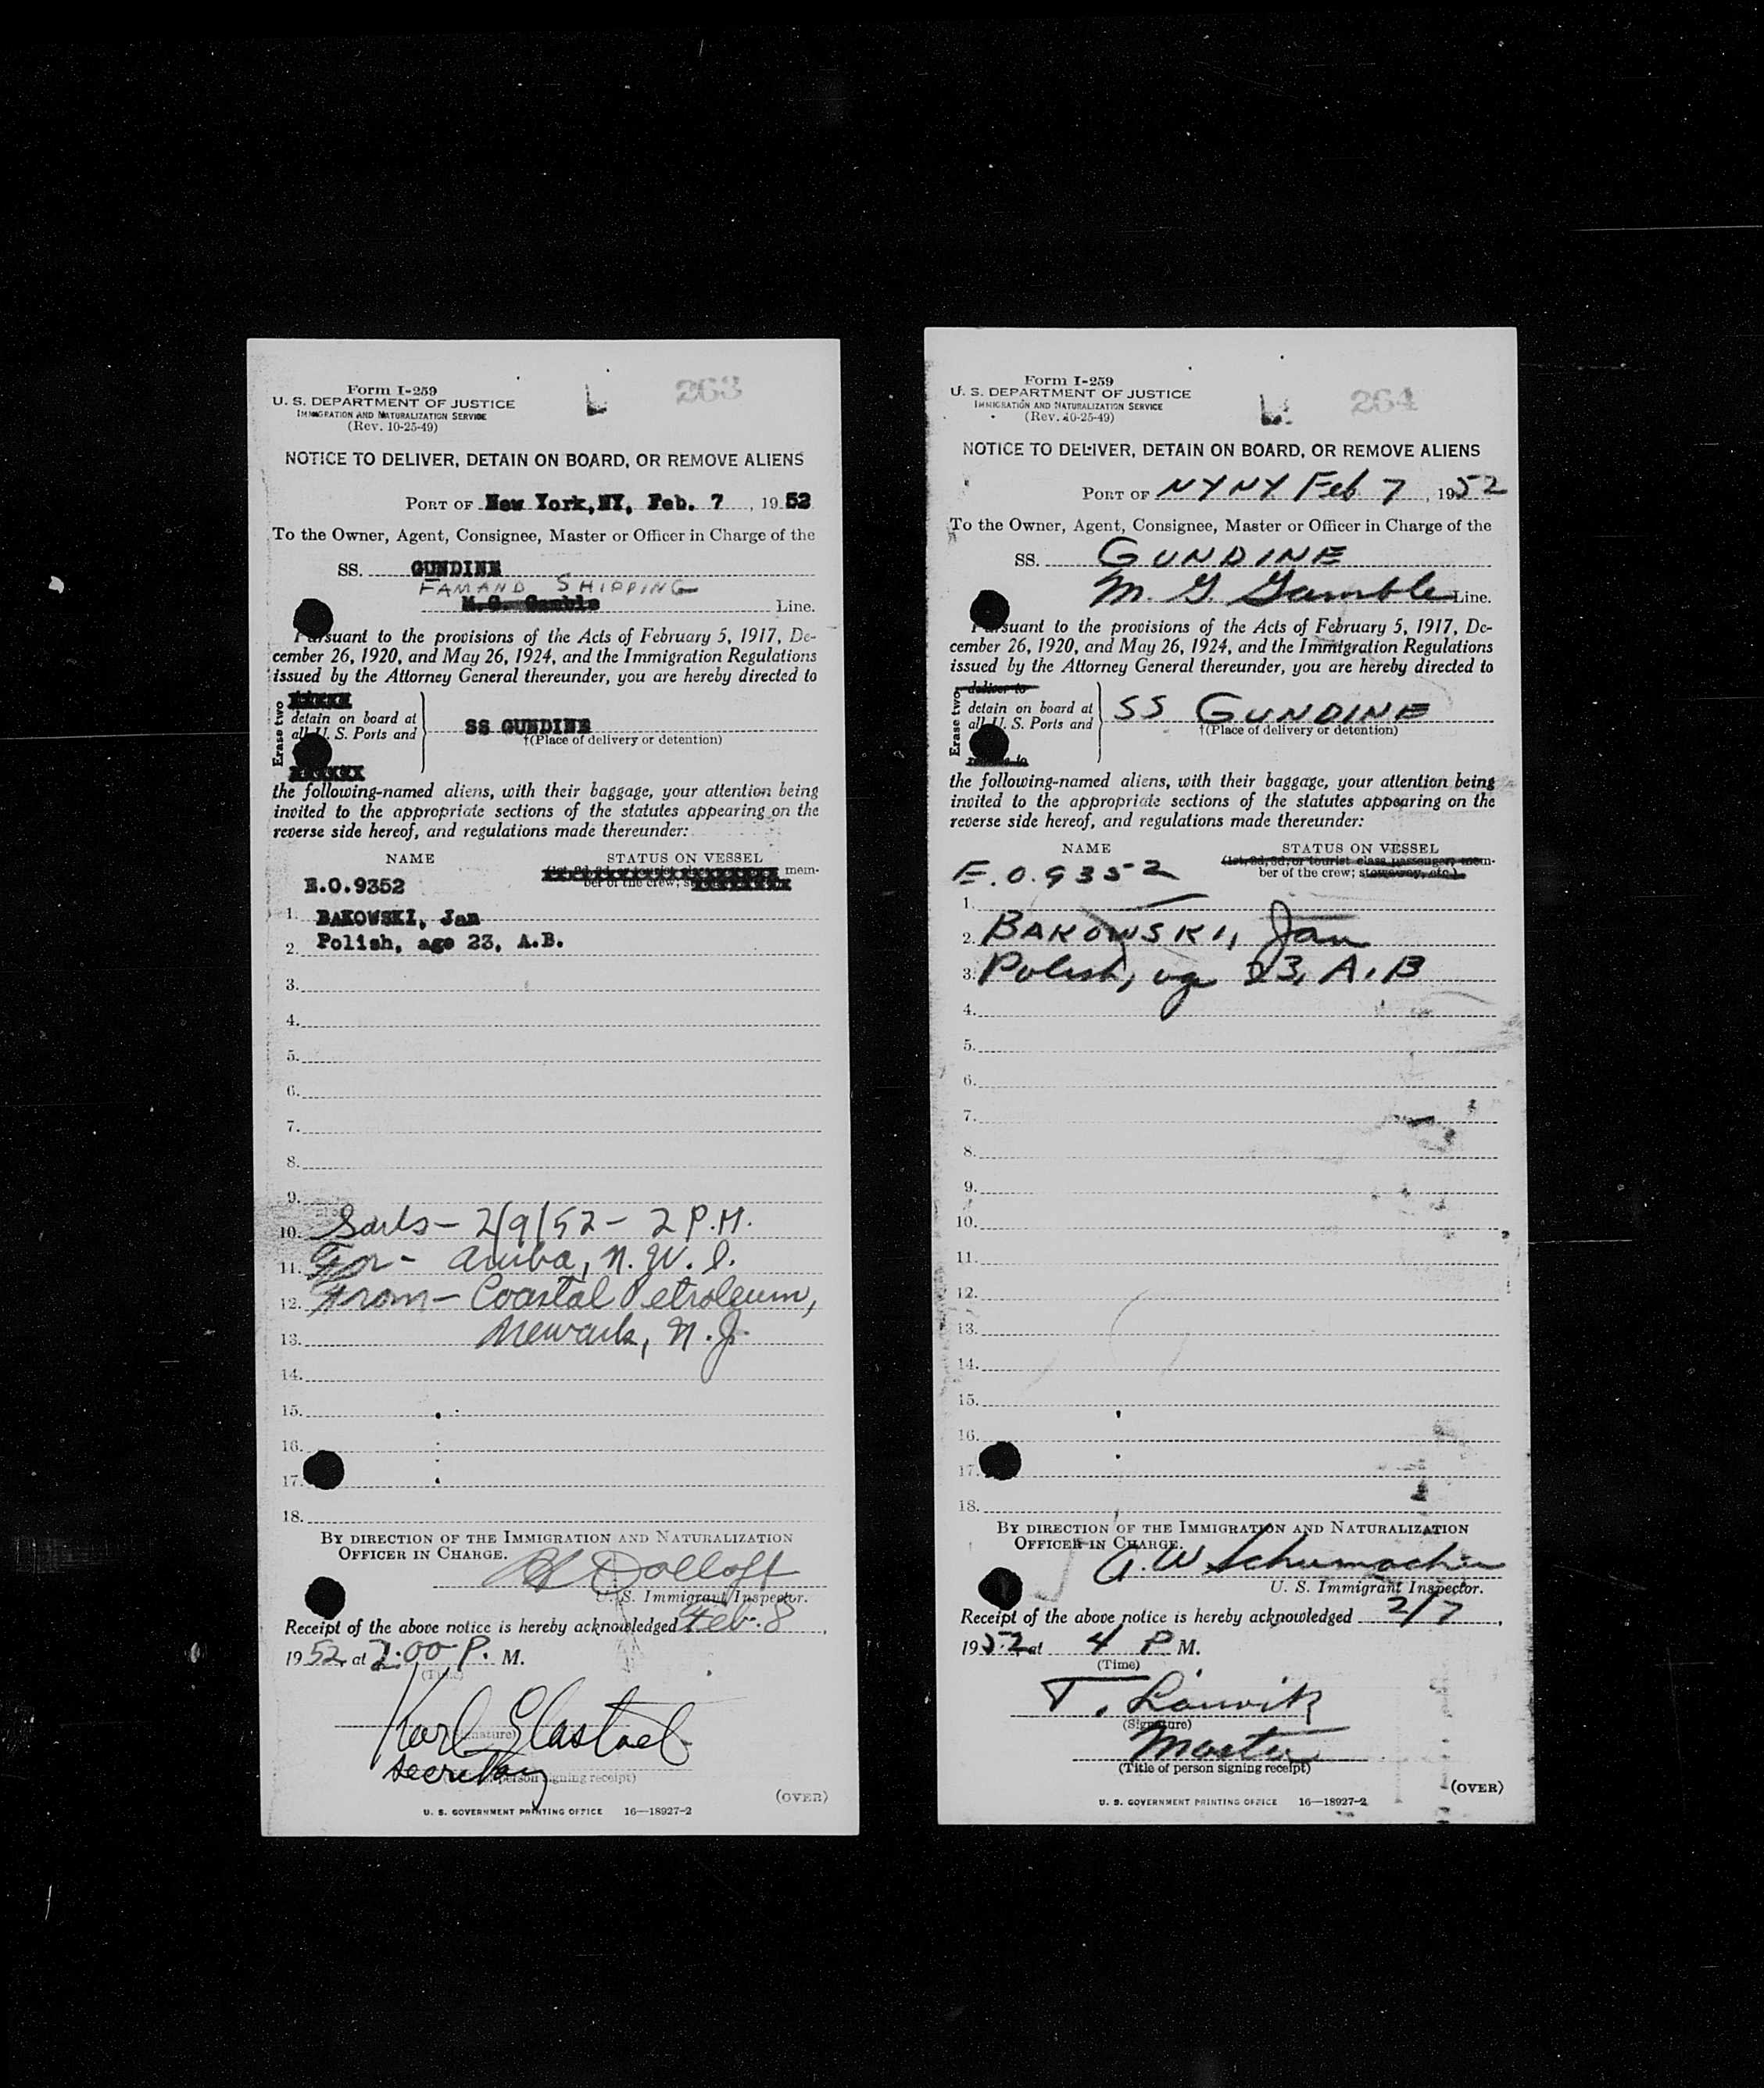 Form I-259
U. S. DEPARTMENT OF JUSTICE
IMMIGRATION AND NATURALIZATION SERVICE
(Rev. 10-25-49)
L
263
NOTICE TO DELIVER, DETAIN ON BOARD, OR REMOVE ALIENS
PORT OF New York, NY, Feb. 7, 1952
To the Owner, Agent, Consignee, Master or Officer in Charge of the
SS. GUNDINE
FAMAND SHIPPING
M.G. Gamble Line.
Pursuant to the provisions of the Acts of February 5, 1917, De-
cember 26, 1920, and May 26, 1924, and the Immigration Regulations
issued by the Attorney General thereunder, you are hereby directed to
Erase two
detain on board at
all U. S. Ports and
SS GUNDINE
†(Place of delivery or detention)
the following-named aliens, with their baggage, your attention being
invited to the appropriate sections of the statutes appearing on the
reverse side hereof, and regulations made thereunder:
NAME STATUS ON VESSEL
mem-
ber of the crew;
E.O.9352
1. BAKOWSKI, Jan
2. Polish, age 23, A.B.
3.
4.
5.
6.
7.
8.
9.
10. Sails - 2/9/52 - 2 P.M.
11. For - Aruba, N.W.I.
12. From - Coastal Petroleum,
13. Newark, N.J.
14.
15.
16.
17.
18.
BY DIRECTION OF THE IMMIGRATION AND NATURALIZATION
OFFICER IN CHARGE.
Dolloff
U. S. Immigrant Inspector.
Receipt of the above notice is hereby acknowledged Feb. 8,
1952, at 2:00 P. M.
(Time)
Karl
(Signature)
Secretary
(Title of person signing receipt)
(OVER)
U. S. GOVERNMENT PRINTING OFFICE 16—18927-2
Form I-259
U. S. DEPARTMENT OF JUSTICE
IMMIGRATION AND NATURALIZATION SERVICE
(Rev. 10-25-49)
L
264
NOTICE TO DELIVER, DETAIN ON BOARD, OR REMOVE ALIENS
PORT OF NYNY Feb 7, 1952
To the Owner, Agent, Consignee, Master or Officer in Charge of the
SS. GUNDINE
M. G. Gamble Line.
Pursuant to the provisions of the Acts of February 5, 1917, De-
cember 26, 1920, and May 26, 1924, and the Immigration Regulations
issued by the Attorney General thereunder, you are hereby directed to
Erase two
deliver to
detain on board at
all U. S. Ports and
remove to
SS GUNDINE
†(Place of delivery or detention)
the following-named aliens, with their baggage, your attention being
invited to the appropriate sections of the statutes appearing on the
reverse side hereof, and regulations made thereunder:
NAME STATUS ON VESSEL
(1st, 2d, 3d, or tourist class passenger; mem-
ber of the crew; stowaway, etc.)
E.O.9352
1.
2. BAKOWSKI, Jan
3. Polish, age 23, A.B
4.
5.
6.
7.
8.
9.
10.
11.
12.
13.
14.
15.
16.
17.
18.
BY DIRECTION OF THE IMMIGRATION AND NATURALIZATION
OFFICER IN CHARGE.
G.W Schumacher
U. S. Immigrant Inspector.
Receipt of the above notice is hereby acknowledged 2/7,
1952 at 4 P. M.
(Time)
T.
(Signature)
Master
(Title of person signing receipt)
(OVER)
U. S. GOVERNMENT PRINTING OFFICE 16—18927-2